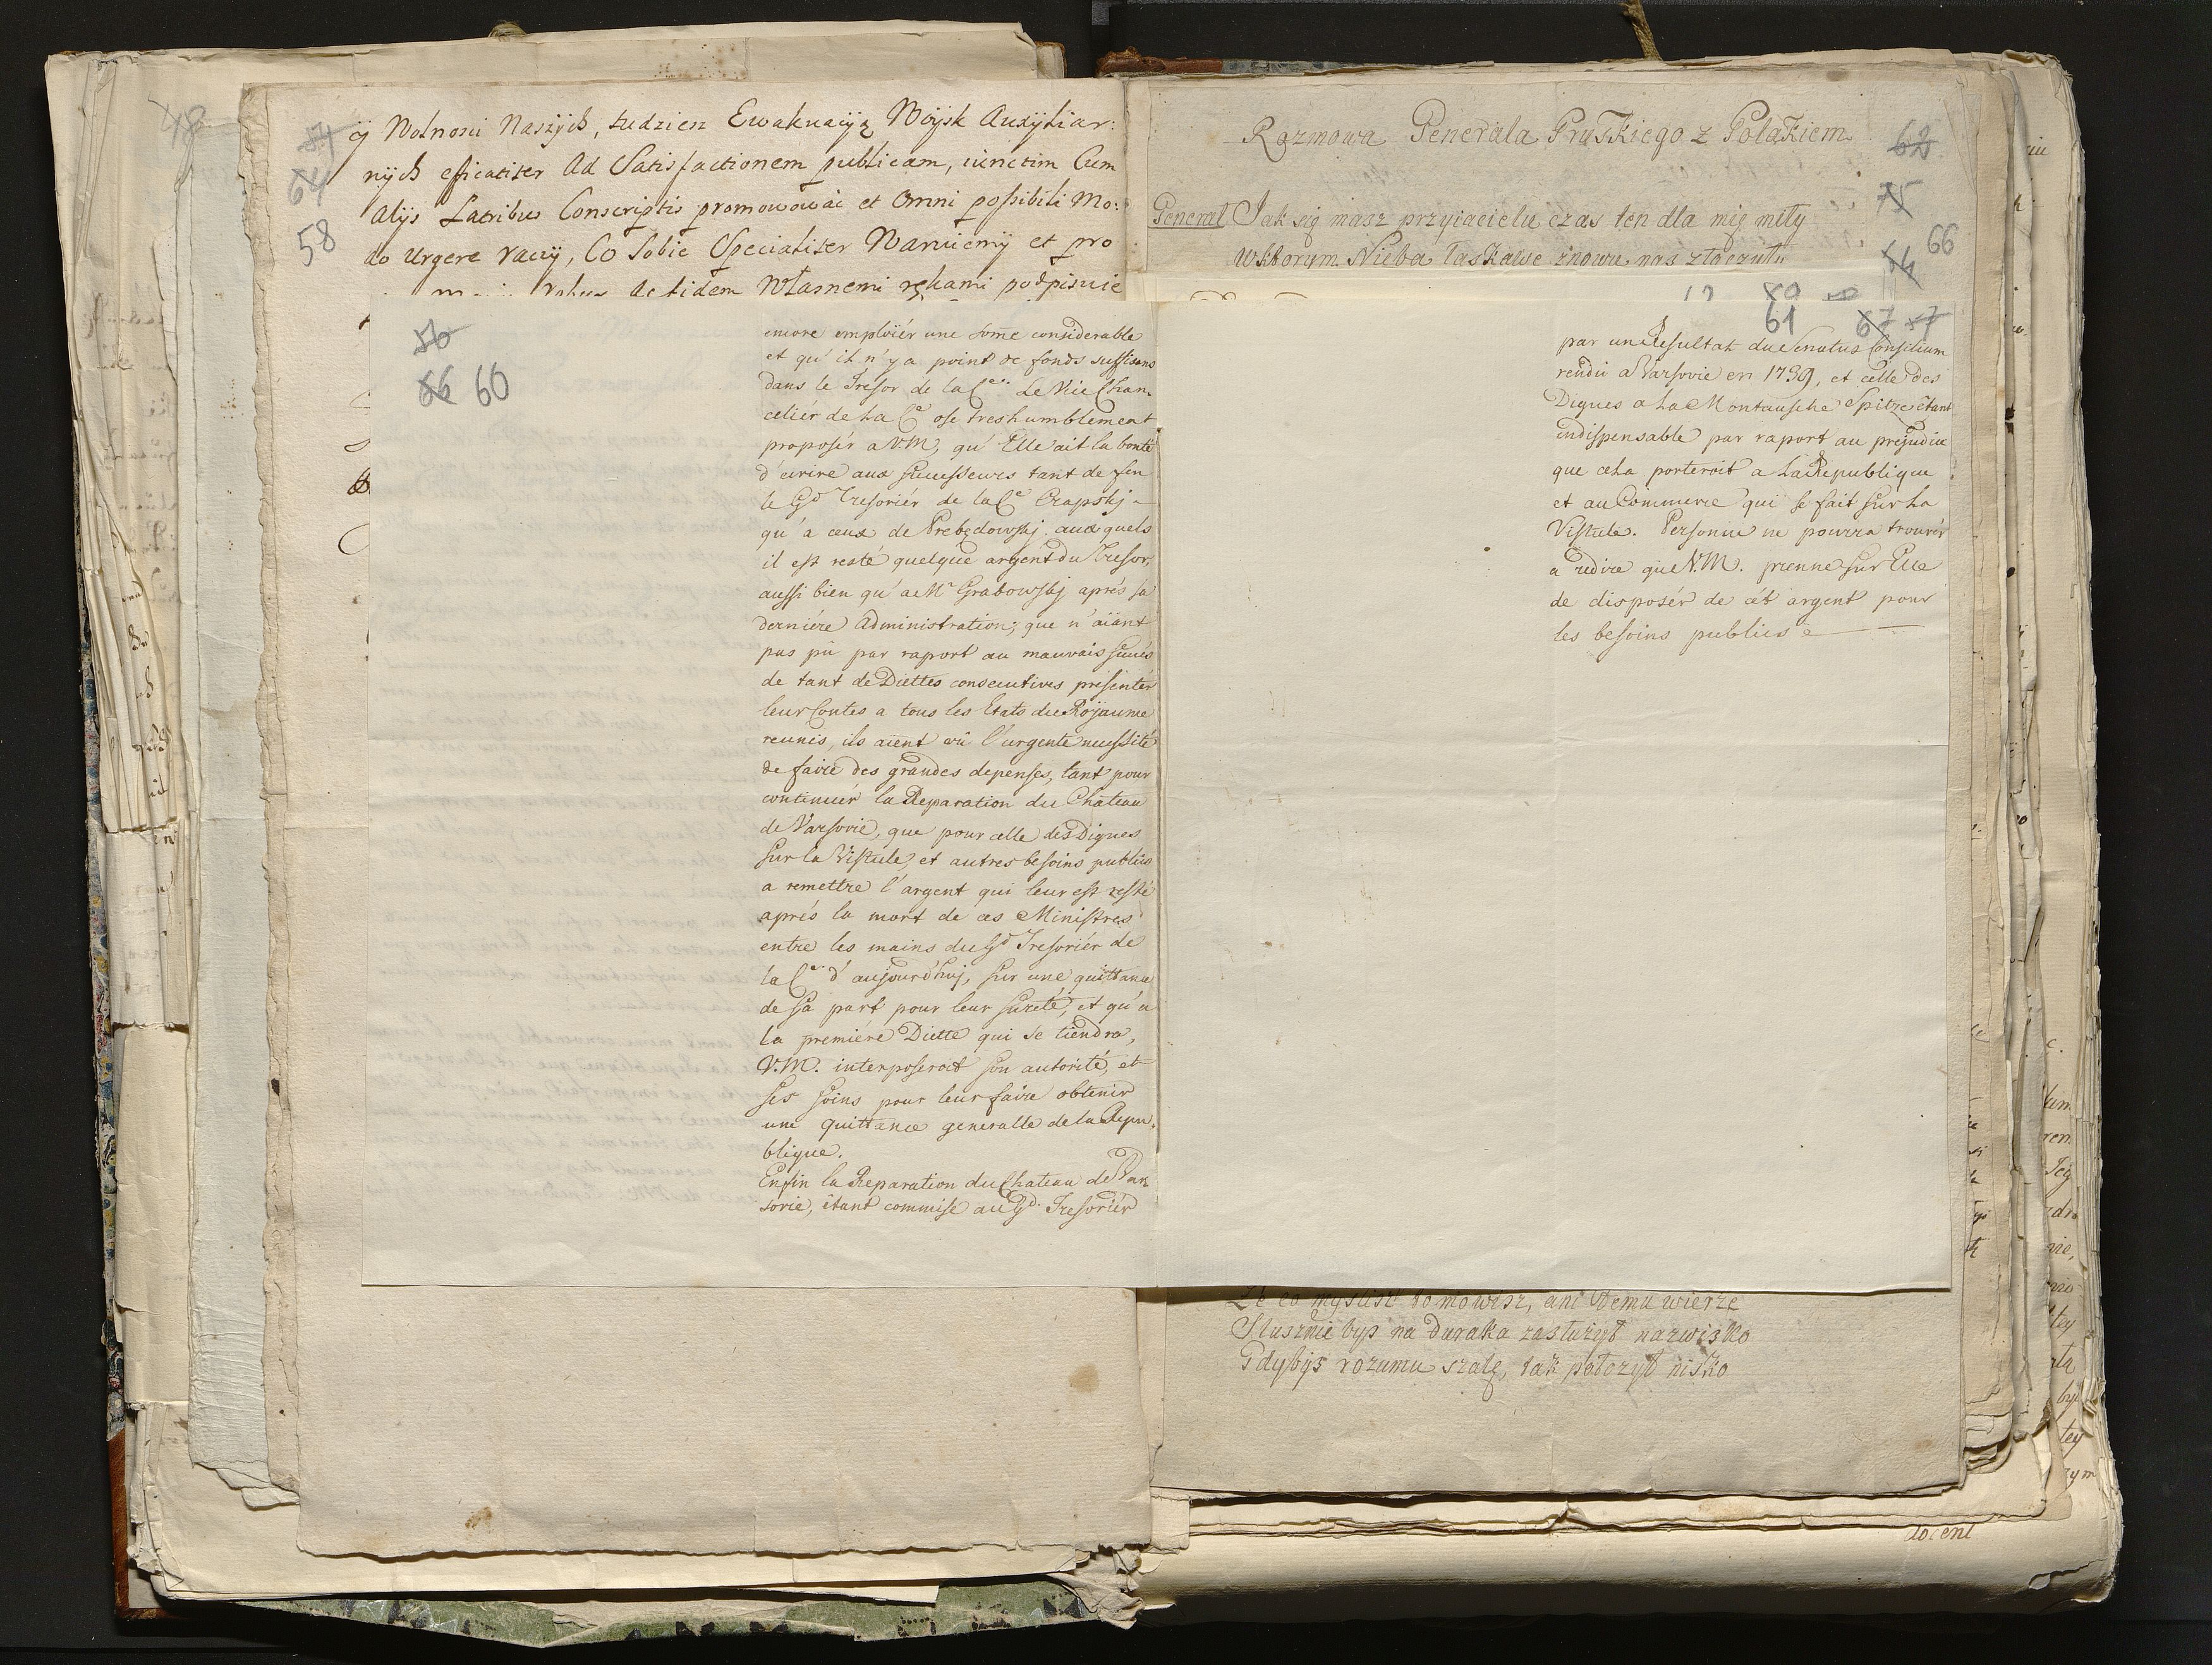 54
64
58
ÿ Wolnosci Naszÿch, tudziesz Ewakuacÿą Woÿsk Auxÿliar:
nÿch eficatiter Ad Satisfactionem publicam, iunctim Cum
Alijs Latribus Conscriptis promowowac et Omni possibili Mo:
do Urgere raczÿ, Co Sobie Specialiter Waruiemÿ et pro
Actidem Własnemi rękami podpisuie
56
66 60
encore emploiér une some considerable
et qu'il n'y a point de fonds suffisans
dans le Tresor de la Cne. Le Vice Chan-
celiér de La Cne ose tres humblement
proposér a V.M, qu'Elle ait la bonté
d'ecrire aux successeurs tant de feu
le Gd Tresoriér de la Cne Czapskj
qu'a ceux de Prebędowskj auxquels
il est resté quelque argent du Tresor,
aussi bien qu'a Mr Grabowskj aprés sa
derniére Administration; que n'aiant
pas pû par raport au mauvais succés
de tant de Diettes consecutives presentér
leur Contes a tous les Etats du Roÿaume
reunis, ils aient vû l'urgente necessité
de faire des grandes depenses, tant pour
continuér la Reparation du Chateau
de Varsovie, que pour celle des Digues
sur la Vistule, et autres besoins publics
a remettre l'argent qui leur est resté
aprés la mort de ces Ministres
entre les mains du Gd Tresoriér de
la Cne d'aujourd'huj, sur une quittance
de sa part pour leur sureté, et qu'a
la premiére Diette qui se tiendra,
V.M. interposeroit son autorité, et
ses soins pour leur faire obtenir
une quittance generalle de la Repu-
blique.
Enfin la Reparation du Chateau de Var-
sovie, étant commise au Gd. Tresoriér
Rozmowa Generala Pruskiego z Polakiem
62
75
66
64
General Jak się masz przyiacielu czas ten dla mię miły
Wktorym Nieba łaskawe znowu nas złączyły
61
67 57
par un Resultat du Senatus Consilium
rendu a Varsovie en 1739, et celle des
Digues a La Montausche Spitze étant
indispensable par raport au prejudice
que cela porteroit a La Republique
et au Commerce qui se fait sur La
Vistule. Personne ne pourra trouvér
a redire que V.M. prenne sur Elle
de disposér de cét argent pour
les besoins publics
Ze co myslisz to mowisz, ani temu wierzę
Slusznie bys na duraka zasłużył nazwisko
Gdybys rozumu szalę, tak położył nisko
docent